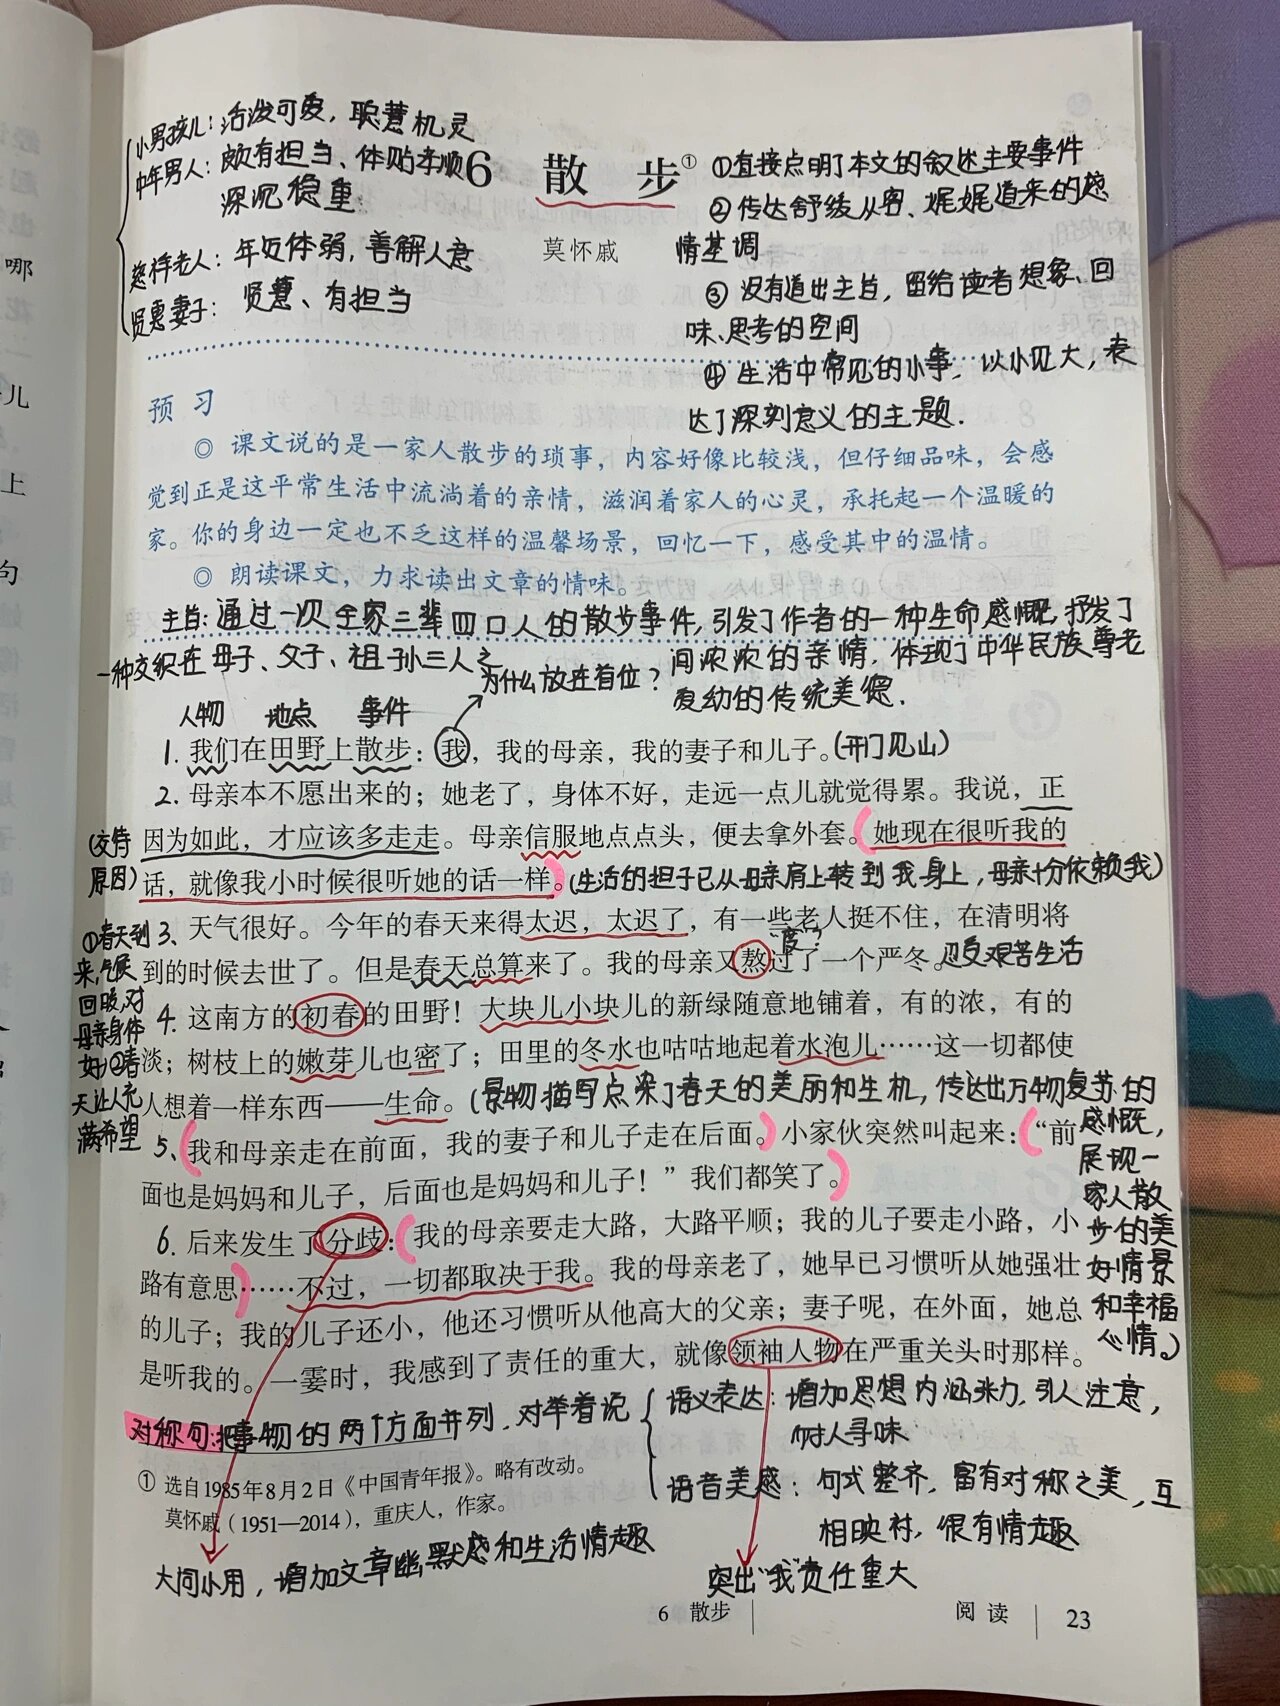 小男孩儿：活泼可爱，聪慧机灵
中年男人：颇有担当、体贴孝顺
深沉稳重
慈祥老人：年迈体弱，善解人意
贤惠妻子：贤慧、有担当
6 散步①
莫怀戚
①直接点明了本文的叙述主要事件
②传达舒缓从容、娓娓道来的感
情基调
③没有道出主旨，留给读者想象、回
味、思考的空间
④生活中常见的小事，以小见大，表
达了深刻意义的主题.
预习
◎ 课文说的是一家人散步的琐事，内容好像比较浅，但仔细品味，会感
觉到正是这平常生活中流淌着的亲情，滋润着家人的心灵，承托起一个温暖的
家。你的身边一定也不乏这样的温馨场景，回忆一下，感受其中的温情。
◎ 朗读课文，力求读出文章的情味。
主旨：通过一次全家三辈四口人的散步事件，引发了作者的一种生命感慨，抒发了
一种交织在母子、父子、祖孙三人之
间浓浓的亲情，体现了中华民族尊老
爱幼的传统美德.
为什么放在首位？
人物 地点 事件
1. 我们在田野上散步：我，我的母亲，我的妻子和儿子。(开门见山)
2. 母亲本不愿出来的；她老了，身体不好，走远一点儿就觉得累。我说，正
因为如此，才应该多走走。母亲信服地点点头，便去拿外套。她现在很听我的
话，就像我小时候很听她的话一样。(生活的担子已从母亲肩上转到我身上，母亲十分依赖我)
(交待
原因)
3、天气很好。今年的春天来得太迟，太迟了，有一些老人挺不住，在清明将
"度"？
到的时候去世了。但是春天总算来了。我的母亲又熬过了一个严冬。忍受艰苦生活
①春天到
来，气候
回暖，对
母亲身体
好②春
天让人充
满希望
4. 这南方的初春的田野！大块儿小块儿的新绿随意地铺着，有的浓，有的
淡；树枝上的嫩芽儿也密了；田里的冬水也咕咕地起着水泡儿……这一切都使
人想着一样东西——生命。(景物描写点染了春天的美丽和生机，传达出万物复苏的
感慨，
展现一
家人散
步的美
好情景
和幸福
心情。)
5、我和母亲走在前面，我的妻子和儿子走在后面。小家伙突然叫起来：“前
面也是妈妈和儿子，后面也是妈妈和儿子！”我们都笑了。
6. 后来发生了分歧：我的母亲要走大路，大路平顺；我的儿子要走小路，小
路有意思……不过，一切都取决于我。我的母亲老了，她早已习惯听从她强壮
的儿子；我的儿子还小，他还习惯听从他高大的父亲；妻子呢，在外面，她总
是听我的。一霎时，我感到了责任的重大，就像领袖人物在严重关头时那样。
对称句：把事物的两个方面并列，对举着说
语义表达：增加思想内涵张力，引人注意，
耐人寻味
语音美感：句式整齐，富有对称之美，互
相映衬，很有情趣
① 选自1985年8月2日《中国青年报》。略有改动。
莫怀戚（1951—2014），重庆人，作家。
大词小用，增加文章幽默感和生活情趣
突出"我"责任重大
6 散步
阅读 23